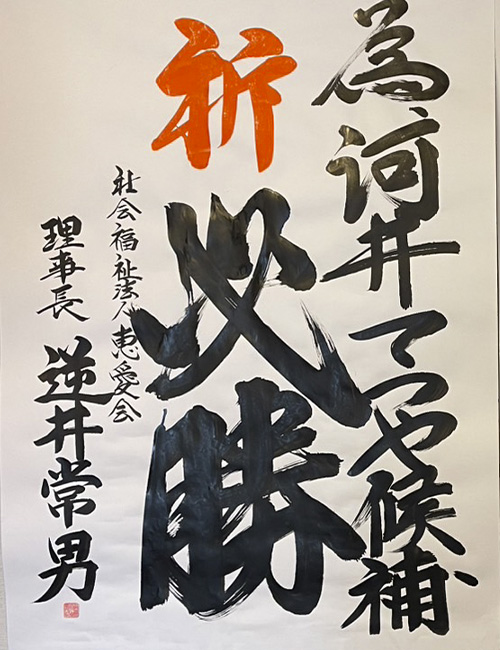 為 河井てつや候補
祈
必勝
社会福祉法人恵愛会
理事長 逆井常男